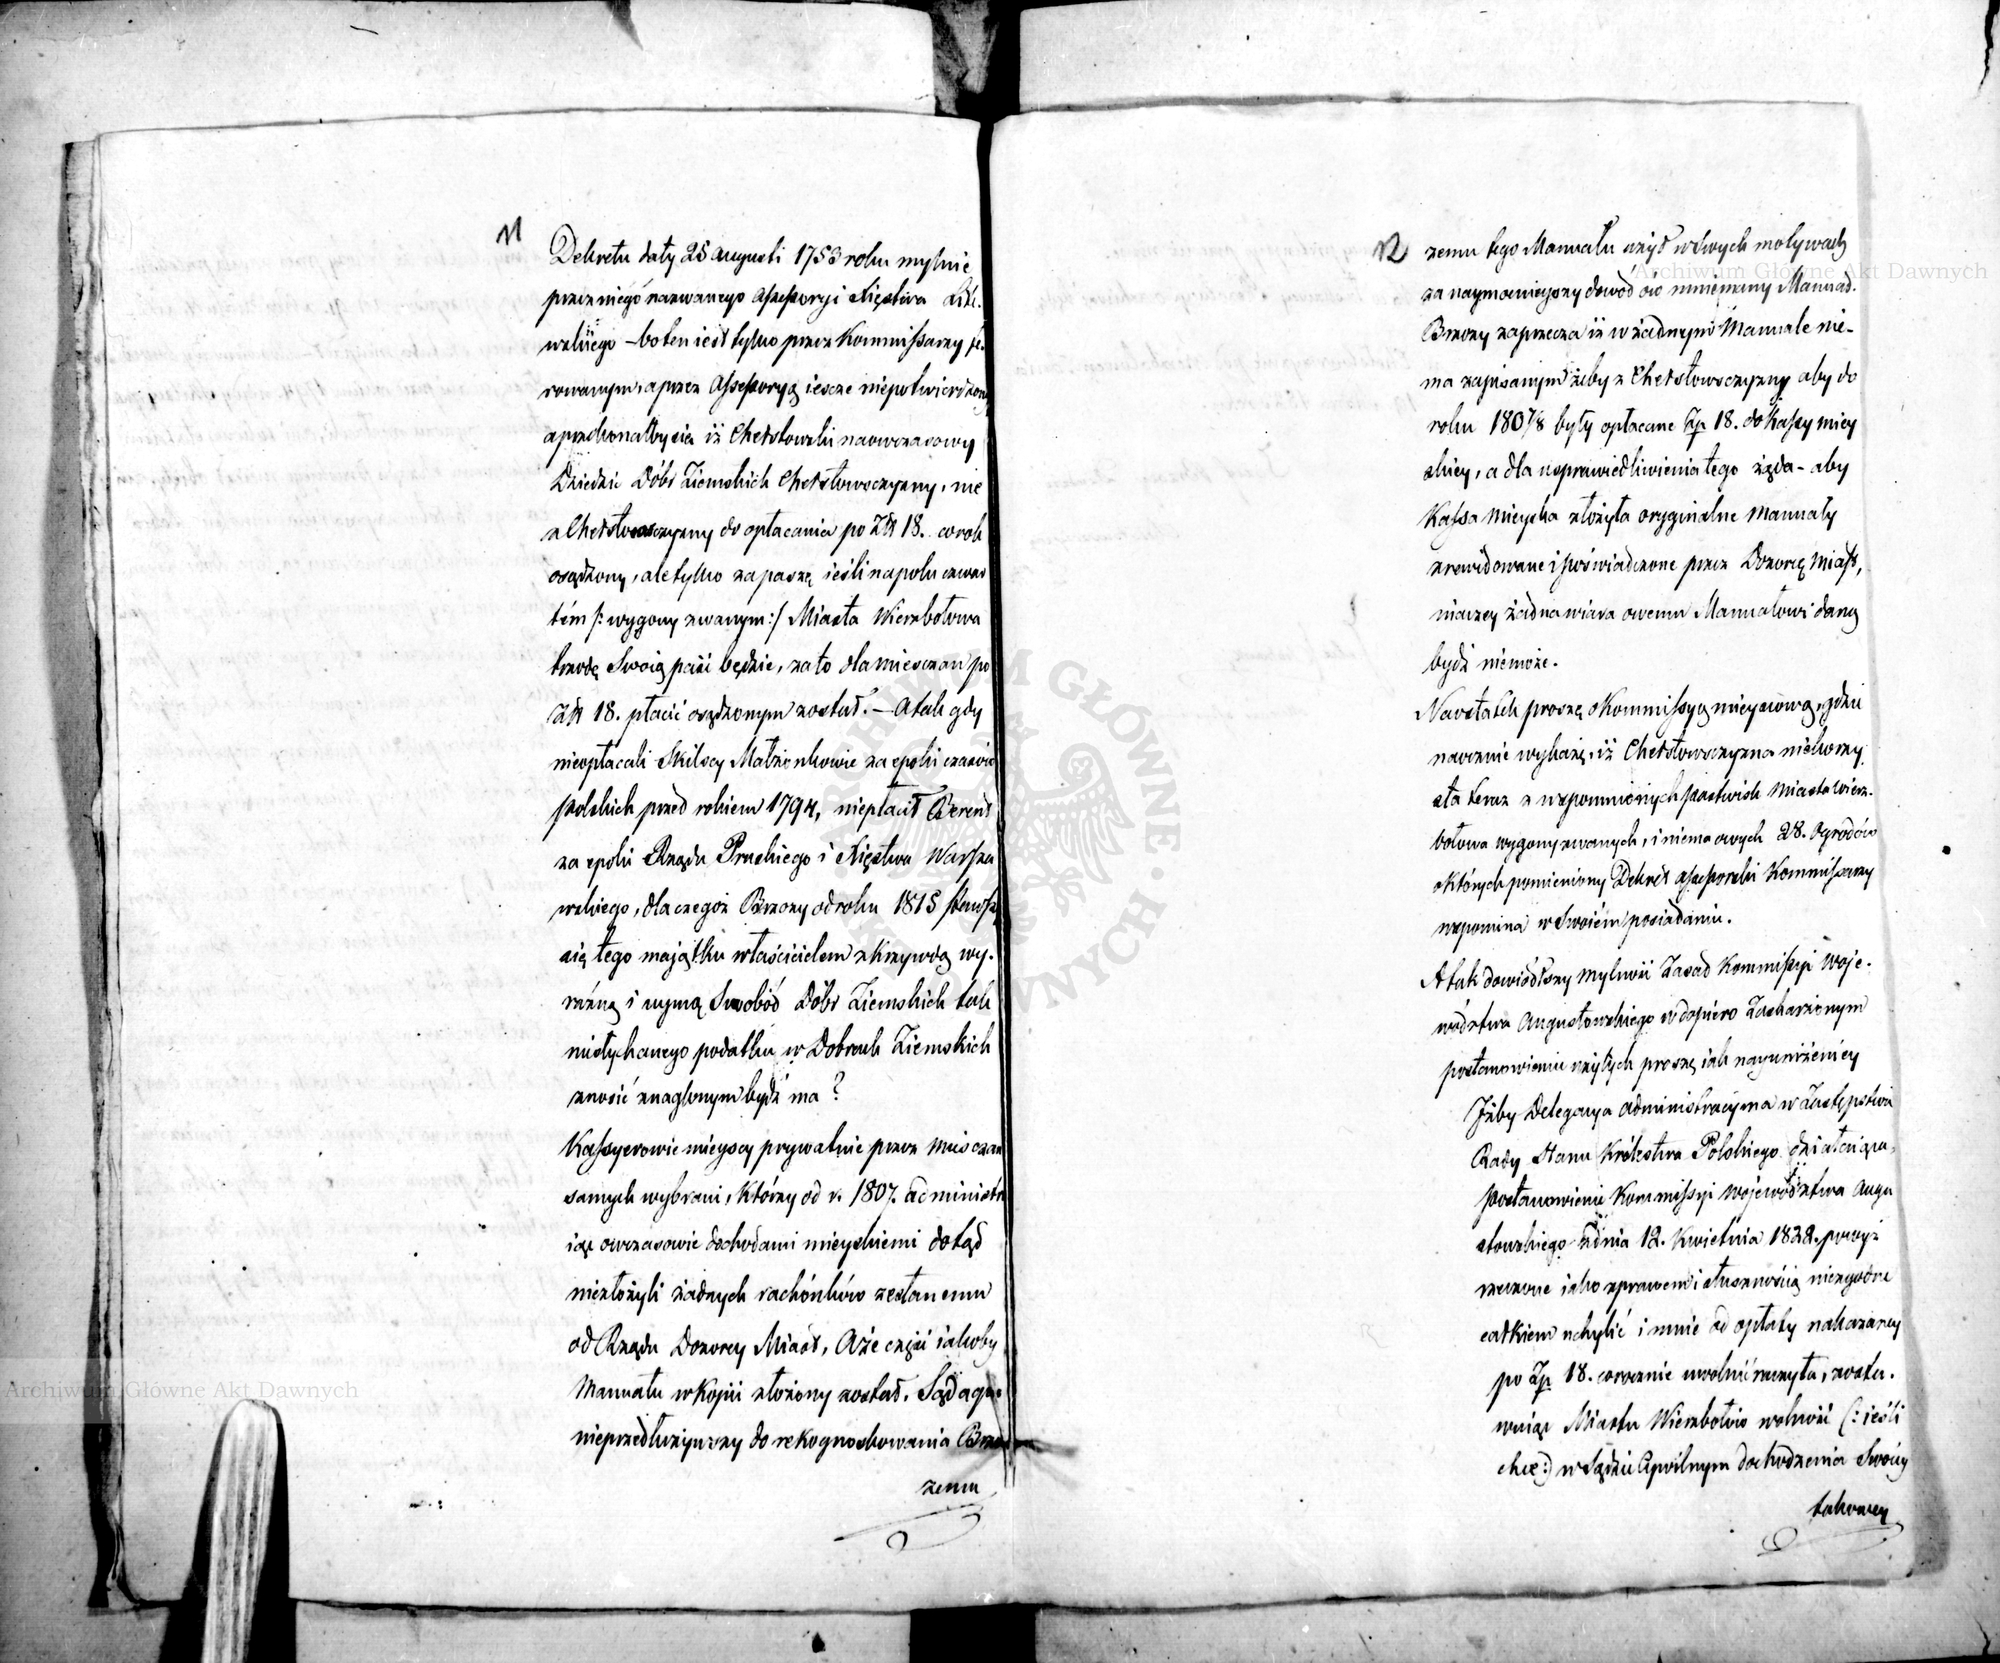 11
Dekretu daty 25 augusti 1753 roku mylnie
przez niego nazwanego Assessoryi Xięstwa Lite.
wskiego – bo ten iest tylko przez Kommissarzy fe.
rowanym, a przez Assessoryą ieszcze niepotwierdzony
a przekonałby się iż Chełstowski naowczasowy
Dziedzic Dóbr Ziemskich Chełstowszczyzny, nie
z Chełstowszczyzny do opłacania po Złł 18. corok
osądzony, ale tylko za paszę ieśli na polu czwar
tém /: wygony zwanym :/ Miasta Wierzbołowa
trzodę Swoią paść będzie, za to dla miesczan po
Złł 18. płacić osądzonym został. – A tak gdy
nieopłacali Skilscy Małżonkowie za epoki czasów
Polskich przed rokiem 1794, niepłacił Berent
za epoki Rządu Pruskiego i Xięstwa Warsza
wskiego, dla czegoż Brzozy od roku 1815 stawszy
się tego maiątku właścicielem z krzywdą wy.
raźną i uymą Swobód Dóbr Ziemskich tak
niesłychanego podatku w Dobrach Ziemskich
znosić znaglonym bydź ma?
Kassyerowie mieyscy prywatnie przez miesczan
samych wybrani, którzy od r. 1807. administru
iąc owczasowie dochodami mieyskiemi dotąd
niezłożyli żadnych rachónków zesłanemu
od Rządu Dozorcy Miast, Aże część iakoby
Manuału w Kopii złożony został. Sąd aquo
nieprzedłużywszy do rekognoskowania Brzo
zemu
12
zemu tego Manuału użył w swych motywach
za naymocnieyszy dowód ów mniemany Manuał.
Brzozy zaprzecza iż w żadnym Manuale nie-
ma zapisanym żeby z Chełstowszczyzny aby do
roku 1807/8 były opłacane Zp 18. do Kassy miey
skiey, a dla usprawiedliwienia tego żąda – aby
Kassa Mieyska złożyła oryginalne Manuały
zrewidowane i poświadczone przez Dozorcę Miast,
inaczey żadna wiara owemu Manuałowi daną
bydź niemoże.
Naostatek proszę o Kommissyą mieyscową, gdzie
naocznie wykażę, iż Chełstowszczyzna niekorzy
sta teraz z wspomnionych pastwisk Miasta Wierz.
bołowa wygony zwanych, i niema owych 28. Ogrodów
o których pomieniony Dekret Assessorski Kommissarzy
wspomina w Swoiém posiadaniu.
A tak dowiódłszy mylność Zasad Kommissyi Woje.
wództwa Augustowskiego w dopiero Zaskarżonym
postanowieniu użytych proszę iak nayuniżeniey
Iżby Delegacya administracyina w Zastępstwie
Rady Stanu Królestwa Polskiego działaiąca,
postanowienie Kommissyi Województwa Augu
stowskiego zdnia 12. Kwietnia 1822. powyż
rzeczone iako z prawem i słusznością niezgodne
całkiem uchylić i mnie od opłaty nakazaney
po Zp 18. corocznie uwolnić raczyła, zosta.
wuiąc Miastu Wierzbołów wolność (: ieśli
chce :) w Sądzie Cywilnym dochodzenia Swoiey
takowey
Archiwum Główne Akt Dawnych
Archiwum Główne Akt Dawnych